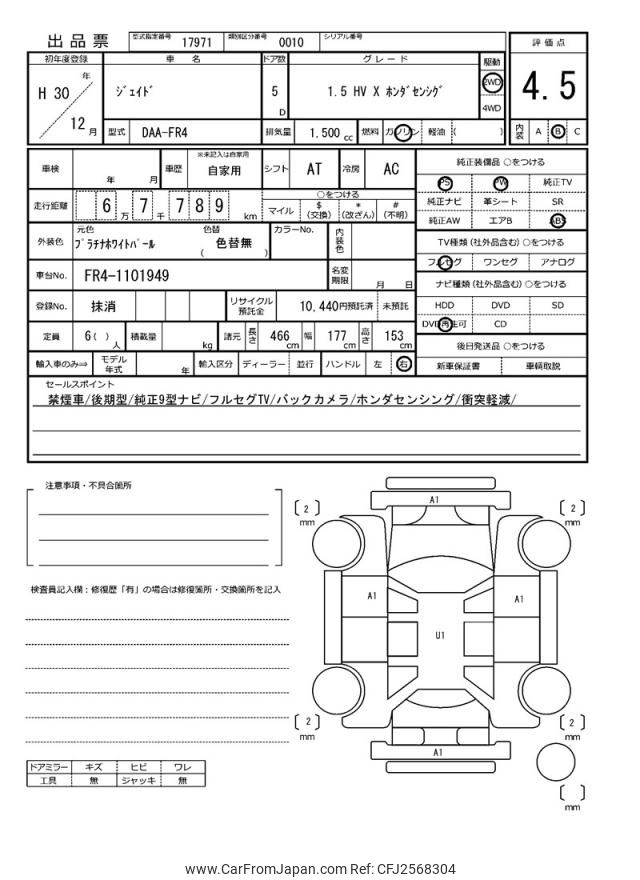 出品票 型式指定番号 17971 類別区分番号 0010 シリアル番号
評価点
4.5
内装 A B C
初年度登録 車名 ドア数 グレード 駆動
H 30 年 ジェイド 5 D 1.5 HV X ホンダセンシング 2WD
4WD
12 月 型式 DAA-FR4 排気量 1.500 cc 燃料 ガソリン 軽油 ( )
車検 年 月 車歴 ※未記入は自家用 自家用 シフト AT 冷房 AC
走行距離 6 万 7 千 7 8 9 km
○をつける
マイル $ (交換) * (改ざん) # (不明)
外装色 元色 プラチナホワイトパール 色替 ( 色替無 ) カラーNo. 内装色
車台No. FR4-1101949 名変期限 月 日
登録No. 抹消 リサイクル預託金 10,440円預託済 未預託
定員 6( )人 積載量 kg 諸元 長さ 466 cm 幅 177 cm 高さ 153 cm
輸入車のみ⇒ モデル年式 年 輸入区分 ディーラー 並行 ハンドル 左 右
純正装備品 ○をつける
PS PW 純正TV
純正ナビ 革シート SR
純正AW エアB ABS
TV種類 (社外品含む) ○をつける
フルセグ ワンセグ アナログ
ナビ種類 (社外品含む) ○をつける
HDD DVD SD
DVD再生可 CD
後日発送品 ○をつける
新車保証書 車輌取説
セールスポイント
禁煙車/後期型/純正9型ナビ/フルセグTV/バックカメラ/ホンダセンシング/衝突軽減/
注意事項・不具合箇所
検査員記入欄:修復歴「有」の場合は修復箇所・交換箇所を記入
ドアミラー キズ ヒビ ワレ
工具 無 ジャッキ 無
A1
2 mm
2 mm
A1
A1
U1
2 mm
2 mm
A1
mm
www.CarFromJapan.com Ref: CFJ2568304